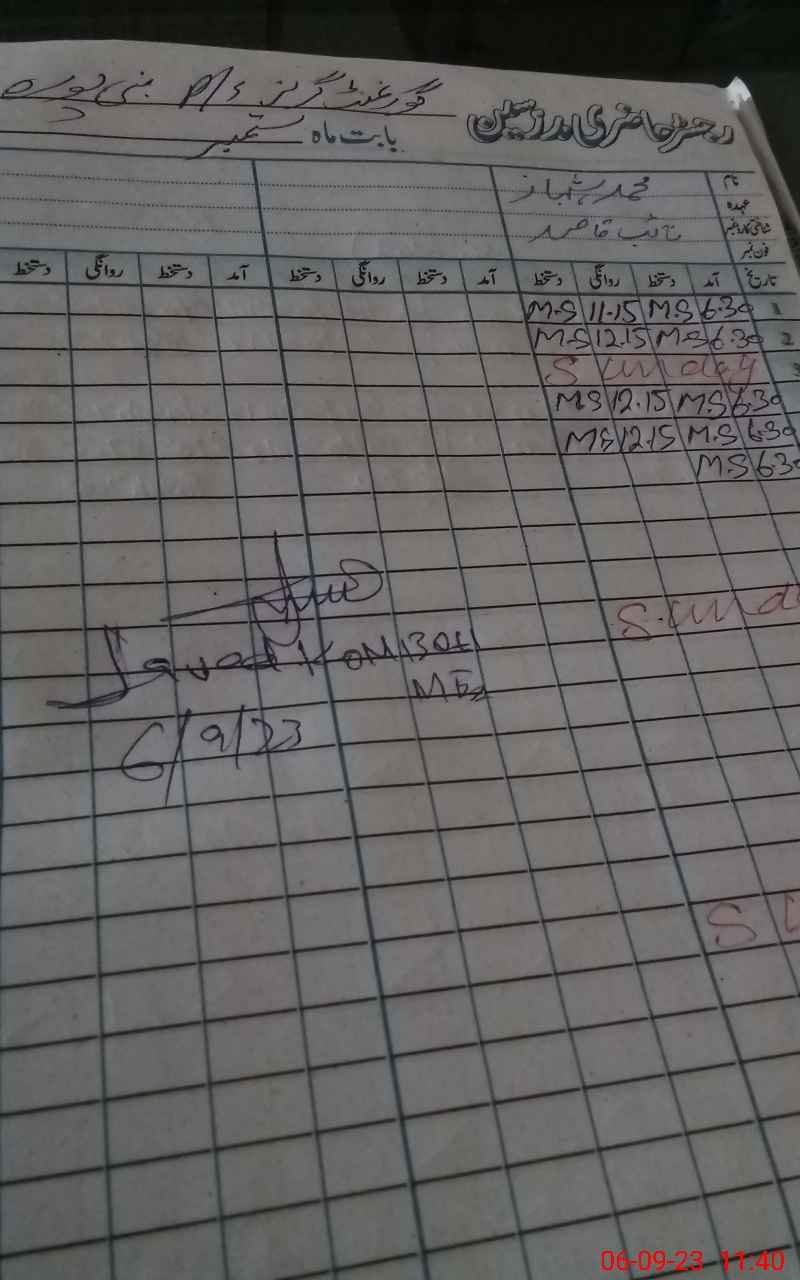 رجسٹر حاضری مدرسین گورنمنٹ گرلز P/S
بابت ماہ ستمبر
نام محمد شہباز
عہدہ نائب قاصد
شناختی کارڈ نمبر
فون نمبر
تاریخ آمد دستخط روانگی دستخط آمد دستخط روانگی دستخط آمد دستخط روانگی دستخط
1 6.30 M.S 11.15 M.S
2 6.30 M.S 12.15 M.S
3 Sunday
6.30 M.S 12.15 M.S
6.30 M.S 12.15 M.S
6.30 M.S
Sunda
Javed
6/9/23
S
06-09-23 11:40